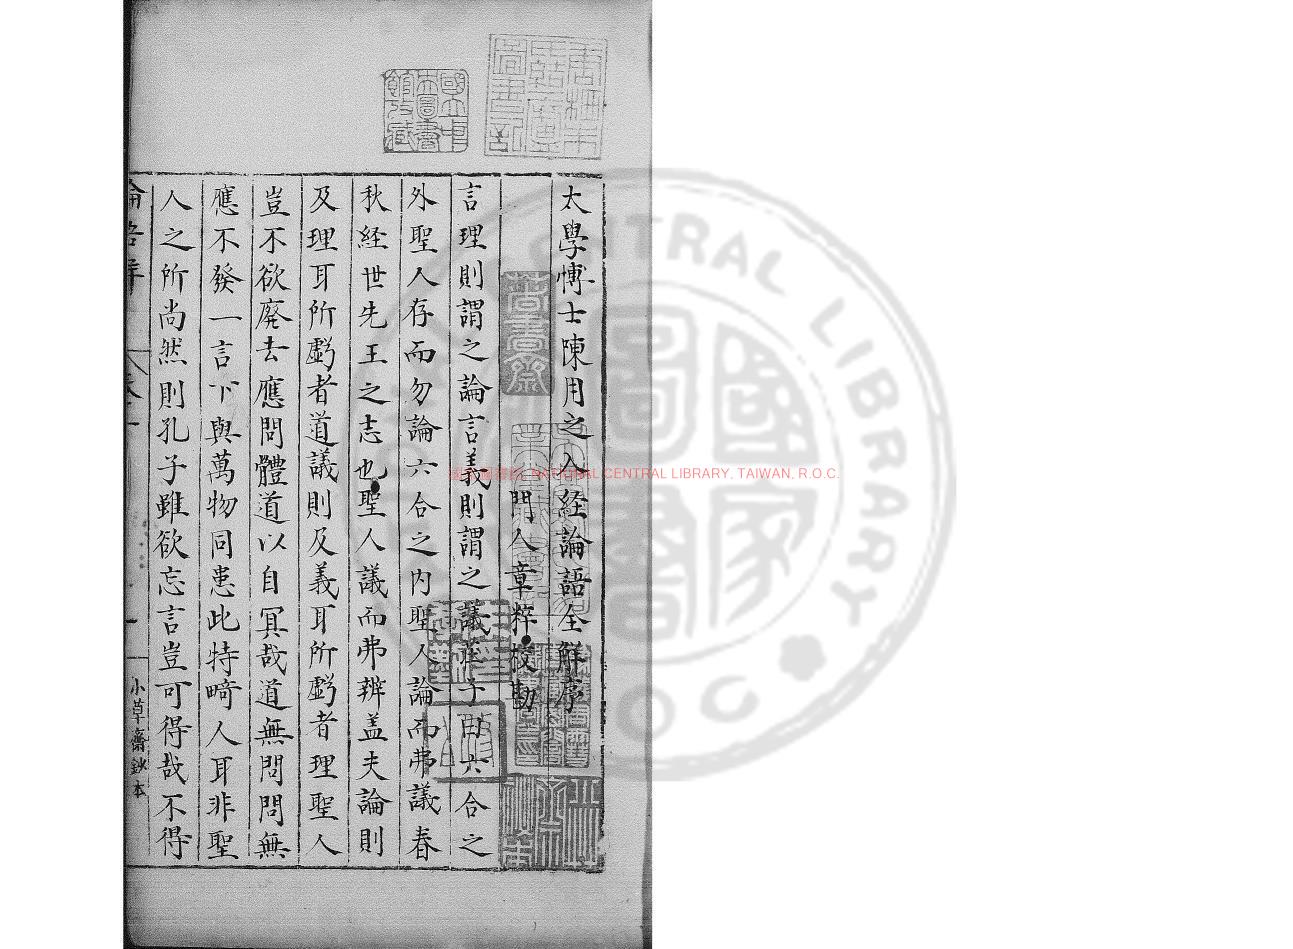 太學博士陳用之入経論語全解序
門人章粹校勘
言理則謂之論言義則謂之議莊子曰六合之
外聖人存而勿論六合之内聖人論而弗議春
秋経世先王之志也聖人議而弗辨盖夫論則
及理耳所虧者道議則及義耳所虧者理聖人
豈不欲廃去應問體道以自冥哉道無問問無
應不發一言下與萬物同患此特畸人耳非聖
人之所尚然則孔子雖欲忘言豈可得哉不得
小草齋鈔本
國立中央圖書館收藏
國家圖書館 NATIONAL CENTRAL LIBRARY, TAIWAN, R.O.C.
CENTRAL LIBRARY
R O C